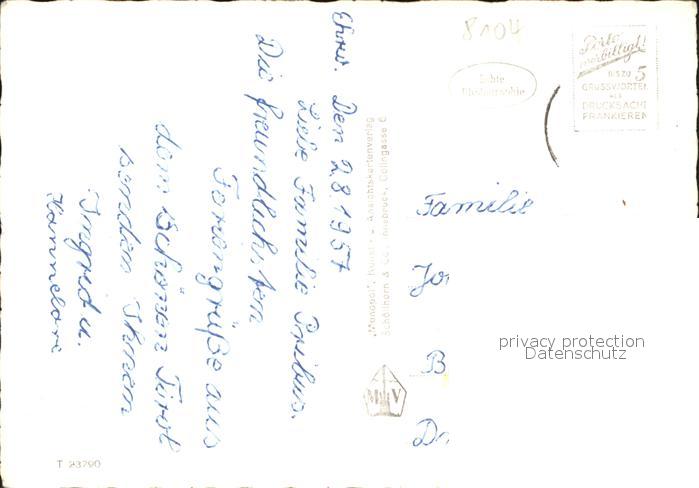 Ehrw. Den 2.8.1957
Liebe Familie Pribus.
Die freundlichsten
Feriengrüße aus
dem schönen Tirol
senden Ihnen
Ingrid u.
Hannelore
8104
Echte
Photographie
Porto
verbilligt!
BIS ZU 5
GRUSSWORTEN
ALS
DRUCKSACHE
FRANKIEREN
„Monopol", Kunst- u. Ansichtskartenverlag
Schöllhorn & Co., Innsbruck, Collingasse 6
Familie
Jo
B
Dr
M V
privacy protection
Datenschutz
T 23790